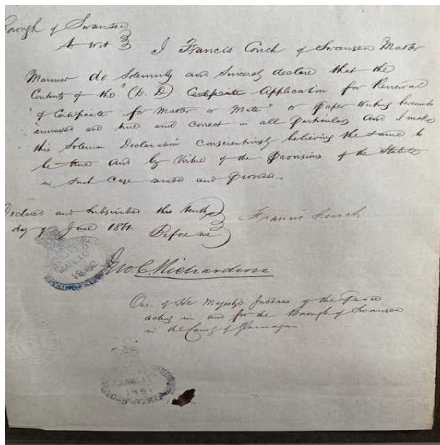 Borough of Swansea
To Wit } I Francis Couch of Swansea Master
Mariner do Solemnly and Sincerely declare that the
Contents of the "(D. D) Certificate Application for Renewal
"of Certificate for Master or Mate" or paper writing hereunto
annexed are true and correct in all particulars And I make
this Solemn Declaration conscientiously believing the same to
be true and by Virtue of the provisions of the Statute
in such Case made and provided.
Declared and Subscribed this
day of June 1861 Before me
Francis Couch
Jno C Richardson
One of Her Majestys Justices of the Peace
acting in and for the Borough of Swansea
in the County of Glamorgan